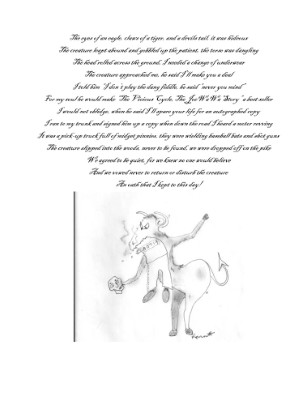 The eyes of an eagle, claws of a tiger, and a devils tail, it was hideous
The creature leapt abound and gobbled up the patient, the toem was dangling
The head rolled across the ground, I needed a change of underwear
The creature approached me, he said I'll make you a deal
I told him "I don't play the dang fiddle, he said "never you mind"
For my soul he would make "The Vicious Cycle, The JuWaWa Story" a best seller
I would not oblidge, when he said I'll spare your life for an autographed copy
I ran to my trunk and signed him up a copy when down the road I heard a motor revving
It was a pick-up truck full of midget pirates, they were wielding baseball bats and shot guns
The creature slipped into the woods, never to be found, we were dropped off on the pike
We agreed to be quiet, for we knew no one would believe
And we vowed never to return or disturb the creature
An oath that I kept to this day!